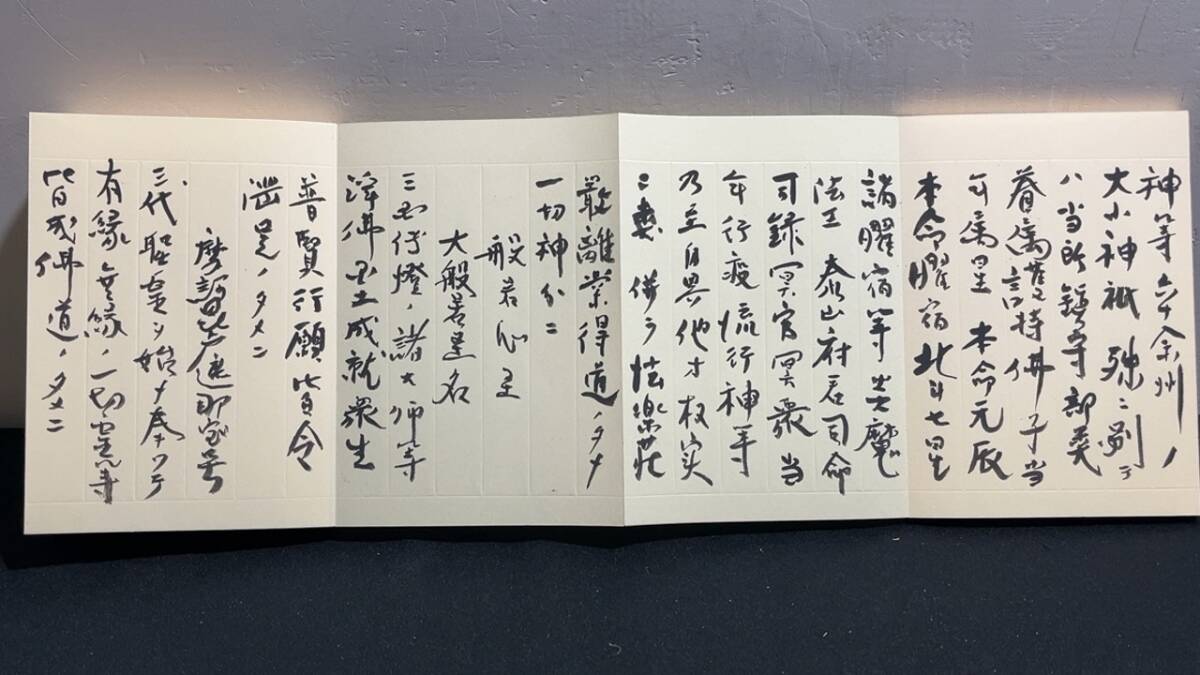 神等六十余州ノ
大小神祇殊ニ別テ
ハ当所鎮守部類
眷属護持佛子当
年属星 本命元辰
本命曜宿北斗七星
諸曜宿等焔魔
法王 泰山府君司命
司録冥官冥衆当
年行疫流行神等
乃至自界他方权実
二類 併ラ 法楽荘
厳離業得道ノタメ
一切神分ニ
般若心経
大般若経名
三国伝燈ノ諸大師等
浄佛国土成就衆生
普賢行願皆令
満足ノタメニ
摩訶毘盧遮那宝号
三代聖皇ヲ始メ奉ツテ
有縁無縁ノ一切霊等
皆成佛道ノタメニ